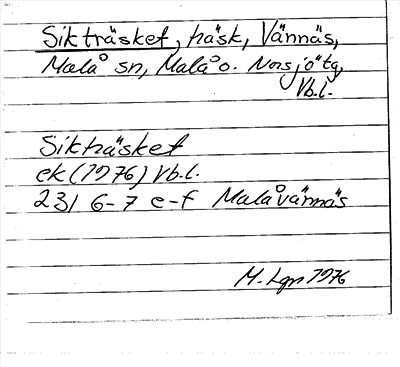 Sikträsket, träsk, Vännäs,
Malå sn, Malå o. Norsjö tg,
Vb.l.
Sikträsket
ek (1976) Vb.l.
23I 6-7 e-f Malåvännäs
M. Lgn 1976